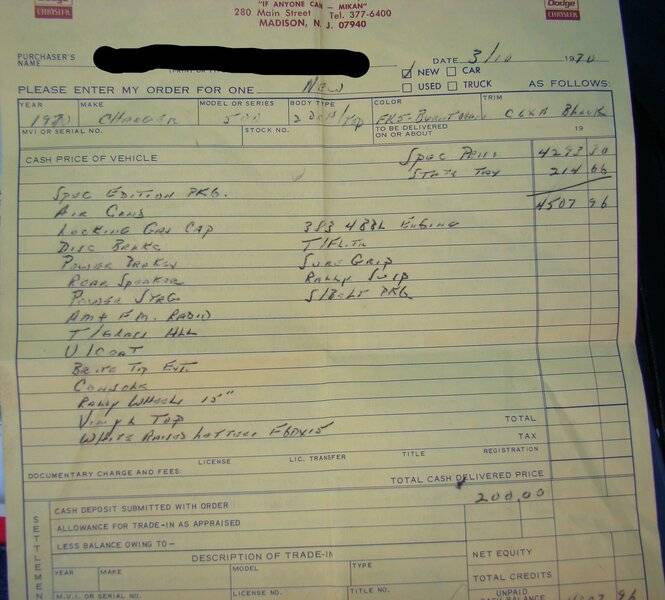 Dodge
CHRYSLER
"IF ANYONE CAN - MIKAN"
280 Main Street Tel. 377-6400
MADISON, N. J. 07940
Dodge
CHRYSLER
PURCHASER'S NAME
DATE 3/10 1970
☑ NEW ☐ CAR
PLEASE ENTER MY ORDER FOR ONE New ☐ USED ☐ TRUCK AS FOLLOWS:
YEAR MAKE MODEL OR SERIES BODY TYPE COLOR TRIM
1970 CHARGER 500 2 DOOR/Top FK5- C6XA Black
MVI OR SERIAL NO. STOCK NO. TO BE DELIVERED ON OR ABOUT 19
CASH PRICE OF VEHICLE Spec 4293 30
STATE TAX 214 66
4507 96
Spec Edition PKG.
Air Cond
Locking Gas Cap 383 4BBL Engine
Disc Brake
Power Brakes Sure Grip
Rear Speaker Rally Susp
Power Strg S/Belt PKG
AM & F.M. Radio
T/Glass All
U/Coat
Brite Tip Ext.
Console
Rally Wheels 15"
Vinyl Top TOTAL
White Raised Letters F60x15 TAX
LICENSE LIC. TRANSFER TITLE REGISTRATION
DOCUMENTARY CHARGE AND FEES:
TOTAL CASH DELIVERED PRICE
CASH DEPOSIT SUBMITTED WITH ORDER 200.00
ALLOWANCE FOR TRADE-IN AS APPRAISED
LESS BALANCE OWING TO—
DESCRIPTION OF TRADE-IN NET EQUITY
YEAR MAKE MODEL TYPE
TOTAL CREDITS
M.V.I. OR SERIAL NO. LICENSE NO. TITLE NO. UNPAID CASH BALANCE
SETTLEMEN